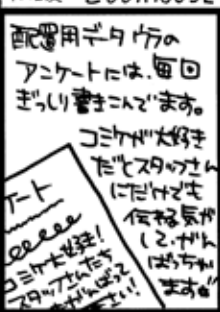 配置用データウラの
アンケートには、毎回
ぎっしり書きこんでます。
コミケが大好き
だとスタッフさん
にだけでも
伝わる気が
して・・がん
ばっちゃい
ます。
ケート
コミケ大好き!
スタッフさんたち
がんばって
さい!